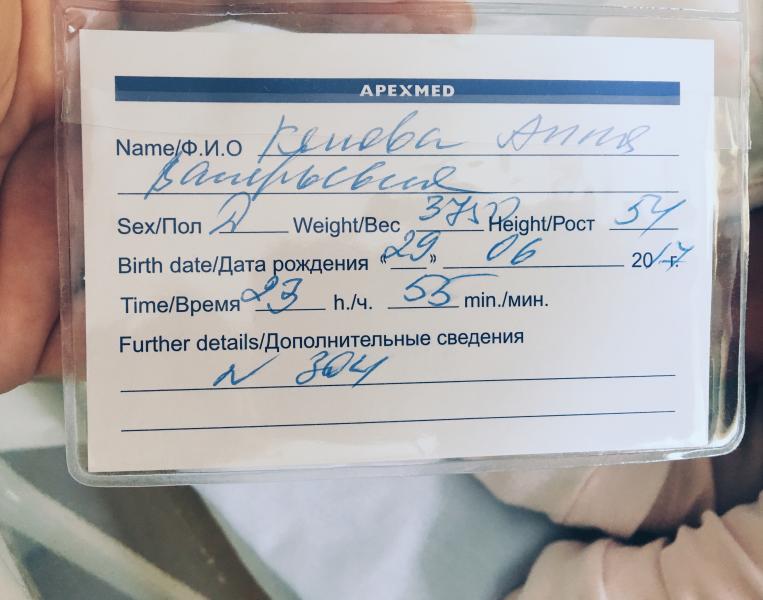 APEXMED
Name/Ф.И.О Анна
Sex/Пол Д Weight/Вес 3750 Height/Рост 54
Birth date/Дата рождения «29» 06 2017 г.
Time/Время 23 h./ч. 55 min./мин.
Further details/Дополнительные сведения
N 304